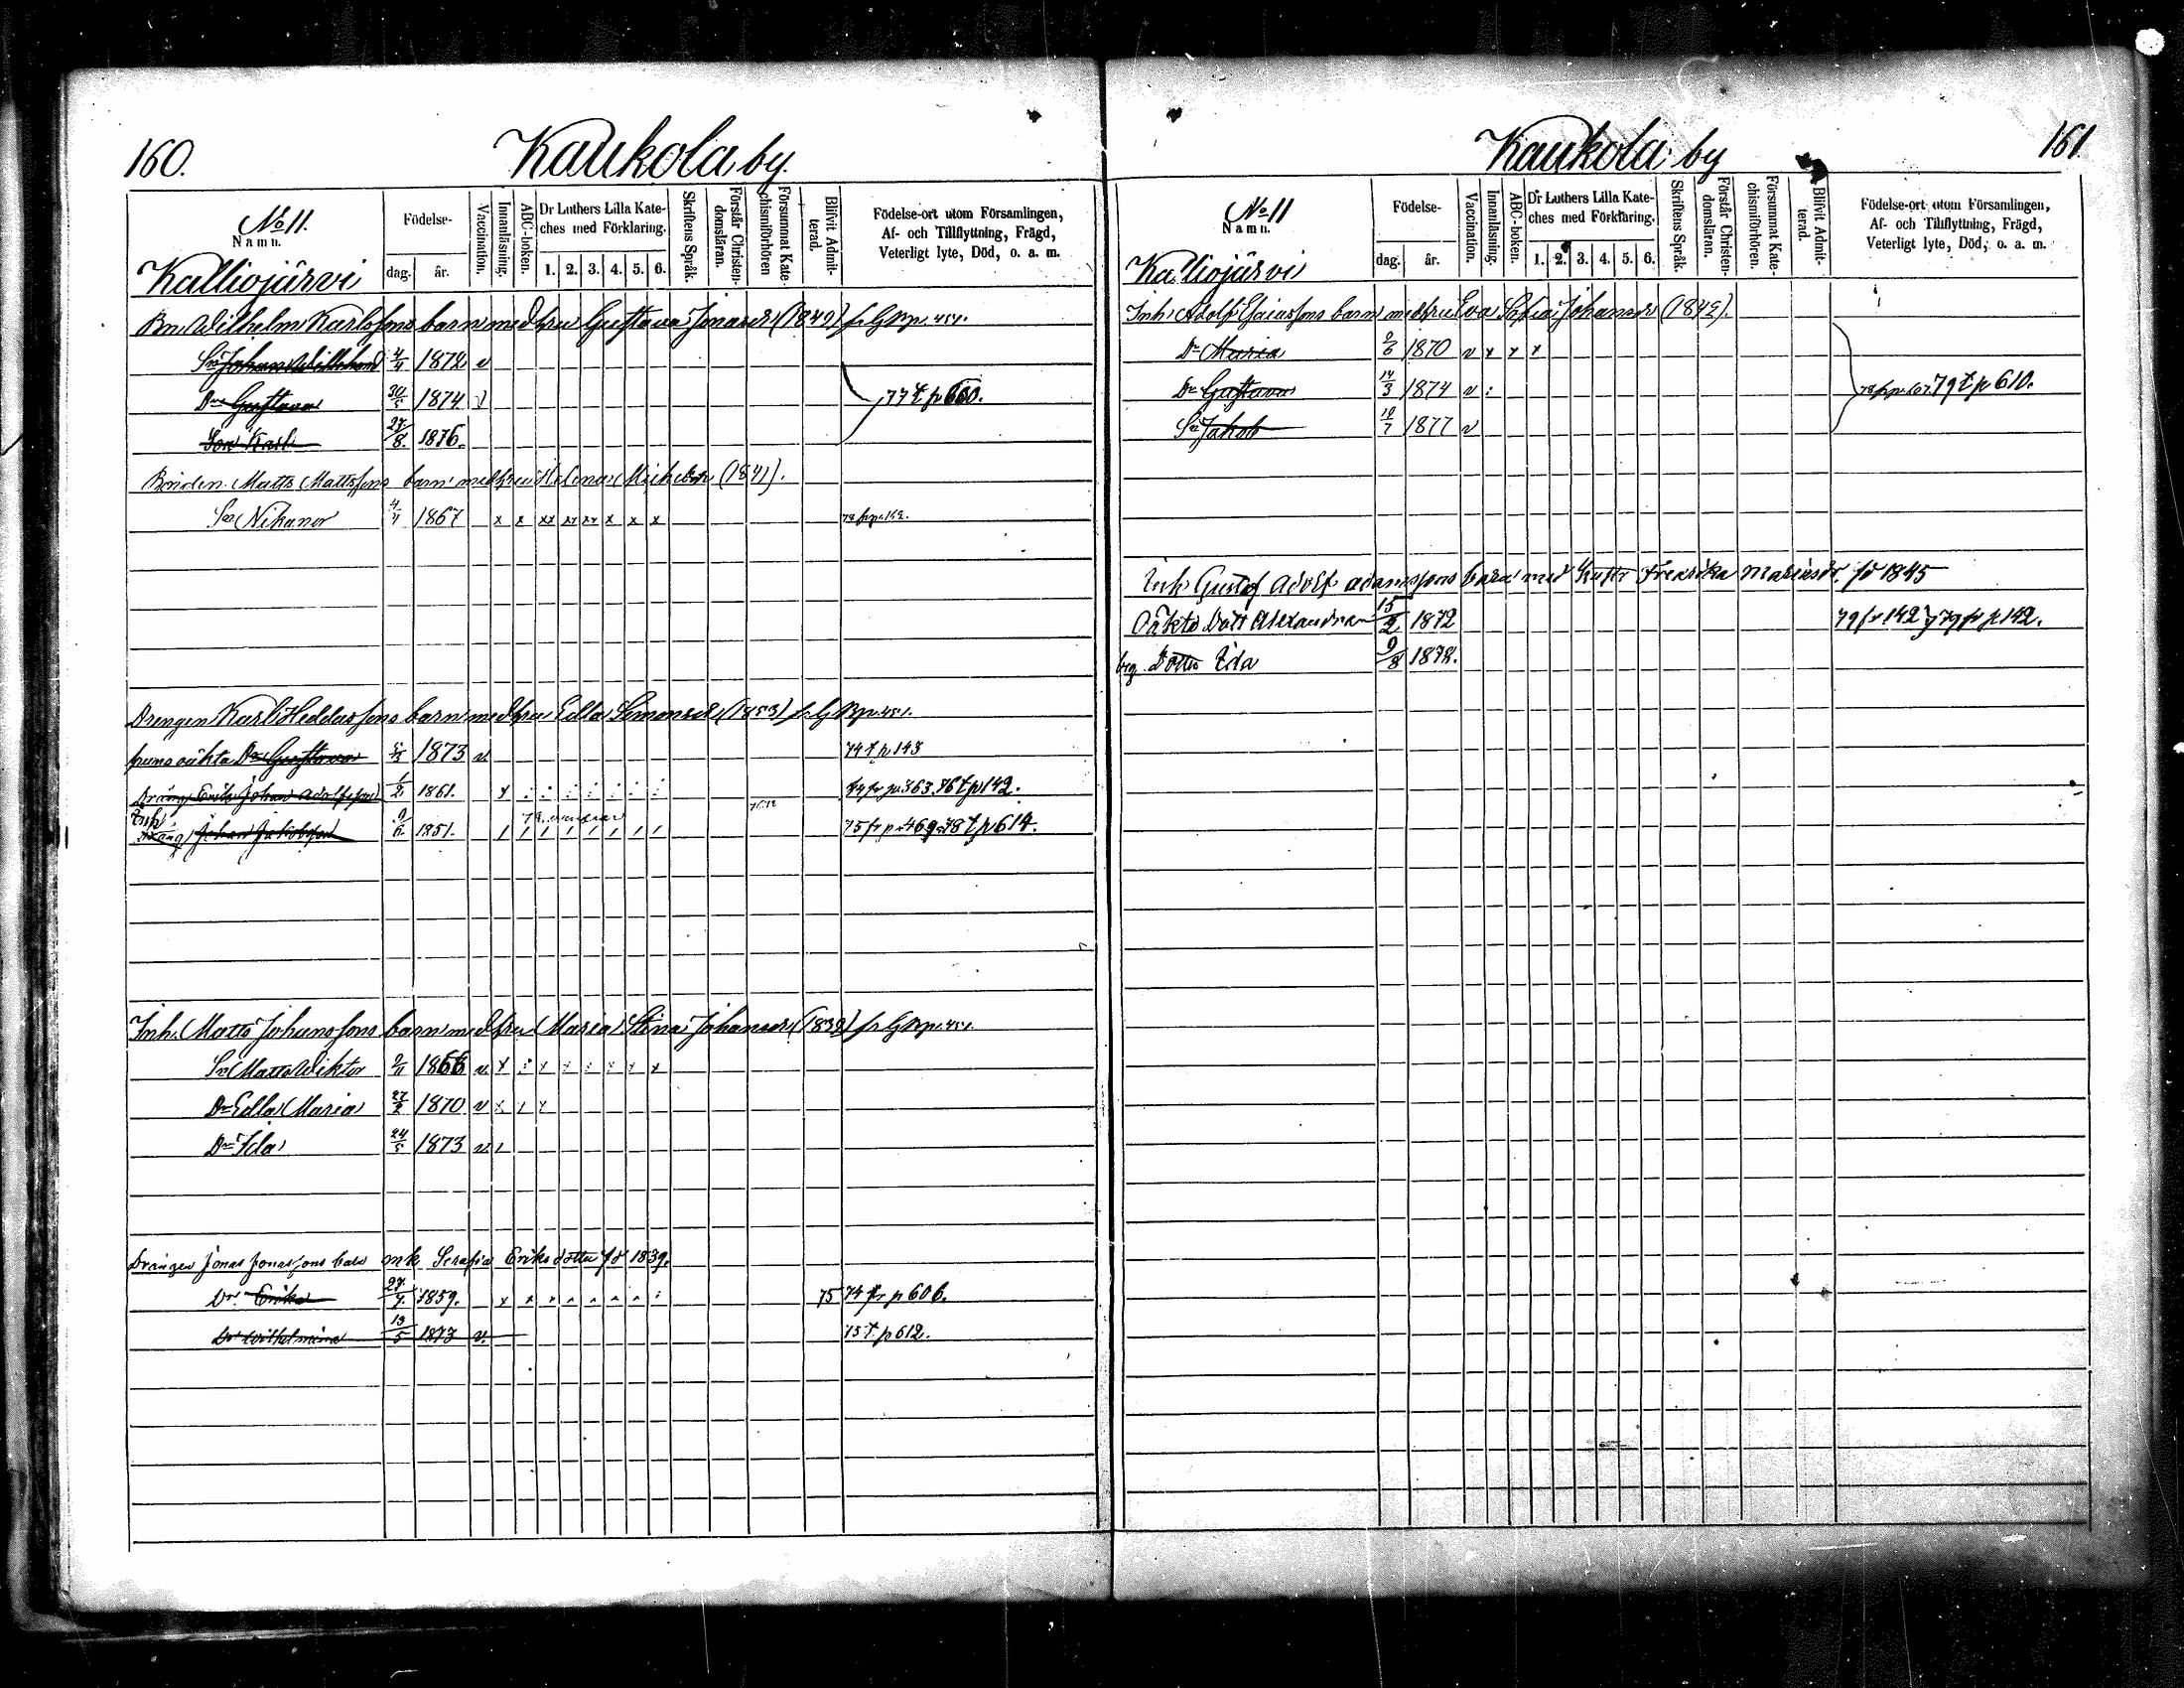 160. Kaukola by.
No 11.
Namn.
Födelse-
dag. år.
Vaccination.
Innanläsning.
ABC-boken.
Dr Luthers Lilla Kate-
ches med Förklaring.
1. 2. 3. 4. 5. 6.
Skriftens Språk.
Förstår Christen-
domsläran.
Försummat Kate-
chismiförhören
Blifvit Admit-
terad.
Födelse-ort utom Församlingen,
Af- och Tillflyttning, Frägd,
Veterligt lyte, Död, o. a. m.
Kalliojärvi
Bn Wilhelm Karlssons barn med hru Gustava Jonasdr (1849)
Sn Johan Willehard 1872 v
Dr Gustava 1874 v 77 t. p 600.
Son Karl 27/8 1876.
Bonden Matts Mattssons barn med hru Helena Michelsdr (1841).
Sn Nikanor 1867 x x xx xx xx x x x
Drengen Karl Heddassons barn med hru Edla Simonsdr (1853)
hens oäkta Dr Gustava 1873 v. 74 t. p 143
Dräng Erik Johan Adolfsson 1/2 1861. 74 fr p. 363. 76 t p 142.
Inh
Dräng Johan Jakobsson 1851. 75 fr p. 469. 78 t p 614.
Inh. Matts Johanssons barn med hru Maria Stina Johansdr (1838)
Sn Matts Wiktor 1866 v
Dr Edla Maria 27/2 1870 v
Dr Ida 24/5 1873 v.
Drängen Jonas Jonassons barn m h Serafia Eriksdotter fd 1839.
Dr. Erika 1859. 75 74 fr p 606.
Dr Wilhelmina 13/5 1873 v. 75 t. p 612.
Kaukola by 161
No 11
Namn.
Födelse-
dag. år.
Vaccination.
Innanläsning.
ABC-boken.
Dr Luthers Lilla Kate-
ches med Förklaring.
1. 2. 3. 4. 5. 6.
Skriftens Språk.
Förstår Christen-
domsläran.
Försummat Kate-
chismiförhören.
Blifvit Admit-
terad.
Födelse-ort utom Församlingen,
Af- och Tillflyttning, Frägd,
Veterligt lyte, Död, o. a. m.
Kalliojärvi
Inh. Adolf Esaiassons barn med hru Eva Sofia Johansdr (1842).
Dr Maria 1870 v x x x
Dr Gustava 14/3 1874 v : 79 t p 610.
Sn Jakob 1877 v
Inh Gustaf Adolf Adamssons barn med hustr Fredrika Mariasdr. fd 1845
Oäkta Dott Alexandra 15/2 1872 79 fr 142 79 fr p 142.
Dotter Ida 9/8 1878.